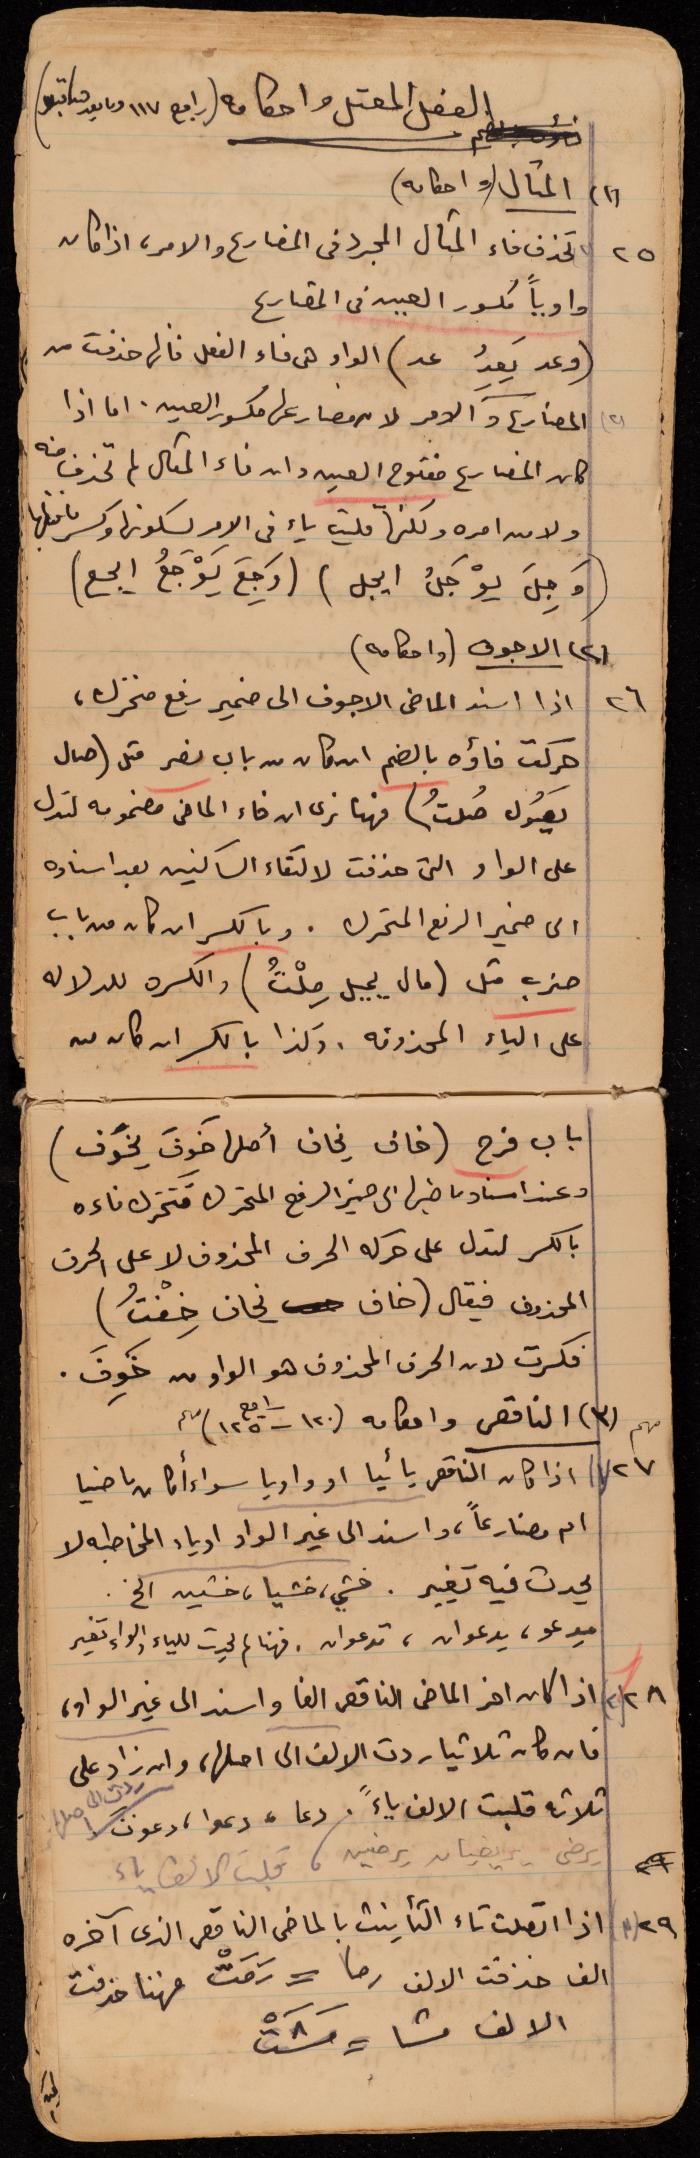 الفعل المعتل واحكامه (راجع ١١٧ وما بعد
(١) المثال (واحكامه)
٢٥ تحذف فاء المثال المجرد فى المضارع والامر، اذا كان
واوياً مكسور العين فى المضارع
(وعد يَعِدُ عد) الواو هى فاء الفعل فانها حذفت من
(٢) المضارع و الامر لان مضارعها مكسور العين . اما اذا
كان المضارع مفتوح العين وان فاء المثال لم تحذف منه
ولا من امره ولكنها قلبت ياء فى الامر لسكونها وكسر ما قبلها
(وَجِلَ يَوْجَلُ ايجل) (وَجِعَ يَوْجَعُ ايجع)
(٢) الاجوف (واحكامه)
٢٦ اذا اسند الماضى الاجوف الى ضمير رفع متحرك،
حركت فاؤه بالضم ان كان من باب نصر مثل (صال
يصُول صُلتُ) فهنا نرى ان فاء الماضى مضمومه لتدل
على الواو التى حذفت لالتقاء الساكنين بعد اسناده
الى ضمير الرفع المتحرك . وبالكسر ان كان من باب
ضرب مثل (مال يميل مِلْتُ) والكسره للدلاله
على الياء المحذوفه . وكذا بالكسر ان كان من
باب فرح (خاف يخاف أصلها خَوِفَ يخوَف)
وعند اسناد ماضيها الى ضمير الرفع المتحرك تتحرك فاءه
بالكسر لتدل على حركه الحرف المحذوف لا على الحرف
المحذوف فيقال (خاف يخاف خِفْتُ)
فكسرت لان الحرف المحذوف هو الواو من خَوِفَ .
مهم (٣) الناقص واحكامه (راجع ١٢٠ – ١٢٥) مهم
٢٧ (١) اذا كان الناقص يائيا او واويا سواء أكان ماضيا
ام مضارعاً، واسند الى غير الواو او ياء المخاطبه لا
يحدث فيه تغيير . خشي، خشيا، خشين الخ .
يدعو، يدعوان، تدعوان . فهنا لم يحدث للياء والواو تغير
٢٨ (٢) اذا كان اخر الماضى الناقص الفا واسند الى غير الواو،
فان كان ثلاثيا ردت الالف الى اصلها، وان زاد على
ثلاثه قلبت الالف ياءً . دعا، دعوا، دعوت ردت الى اصلها
يرضى يرضيان يرضين، قلبت الالف ياء
٢٩ (٣) اذا اتصلت تاء التأنيث بالماضى الناقص الذى آخره
الف حذفت الالف رمى = رَمَتْ فهنا حذفت
الالف مشا = مَشَتْ